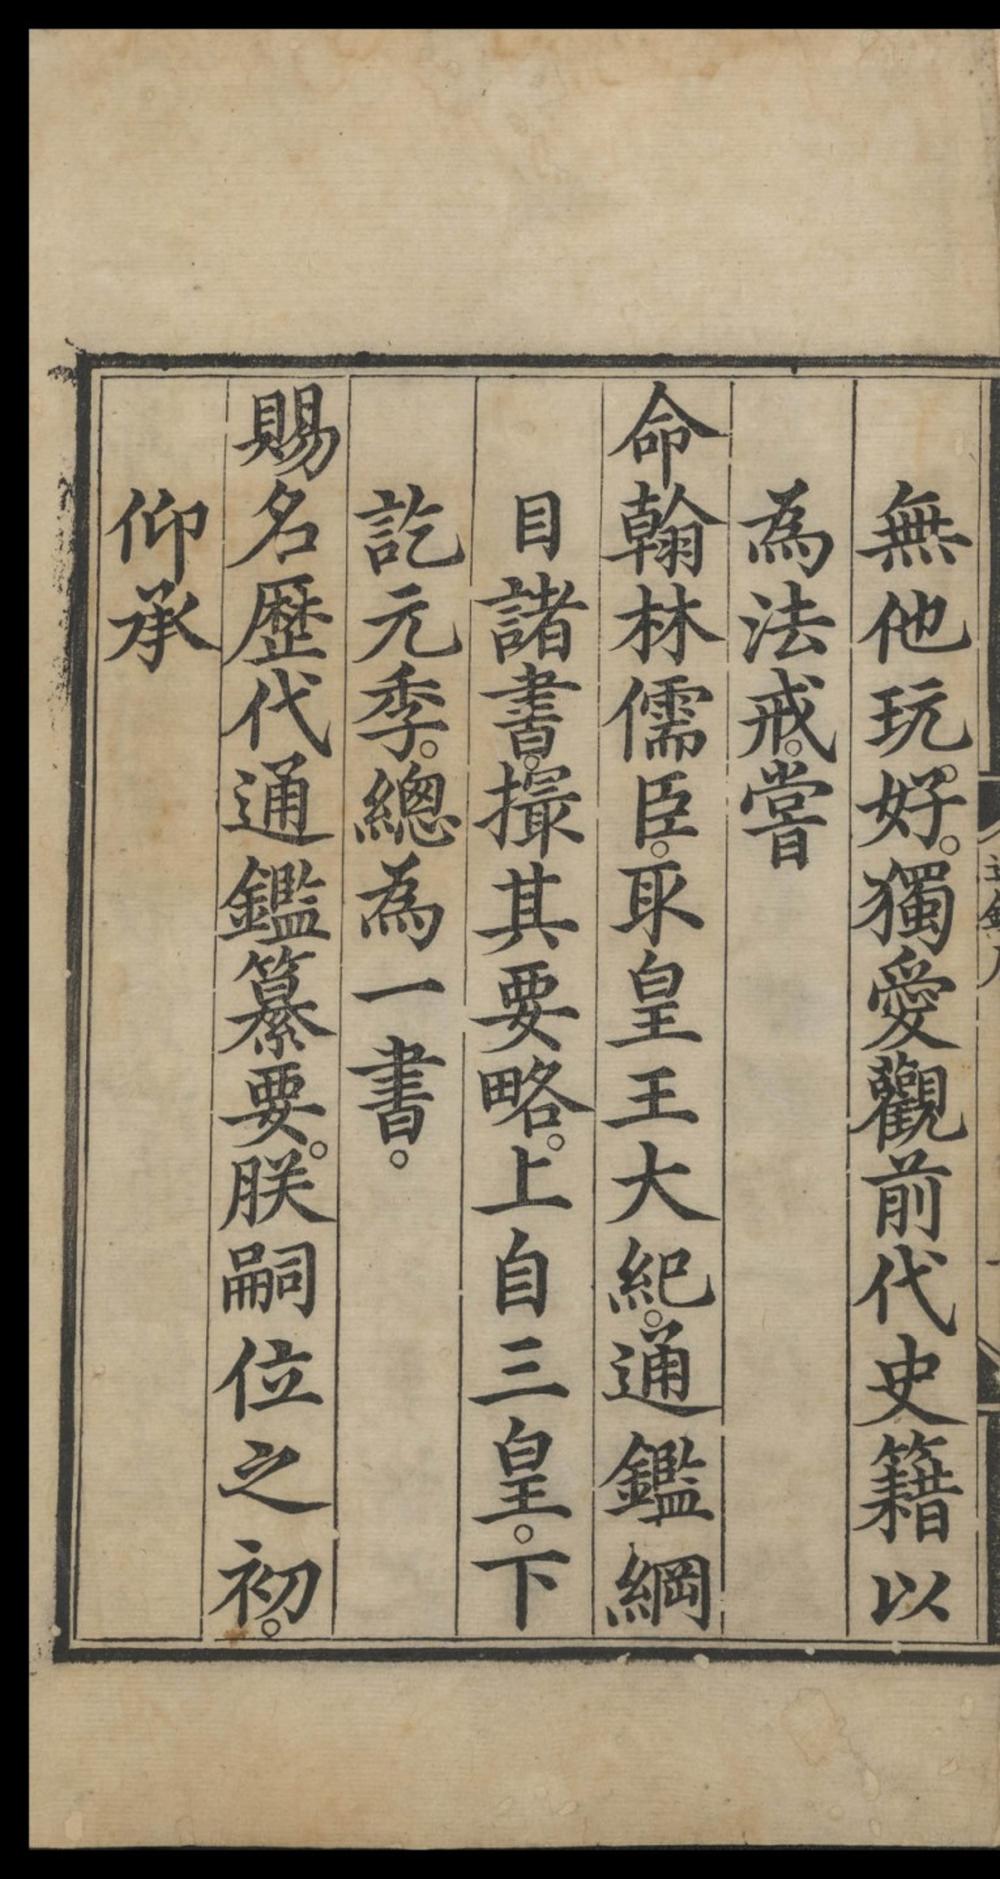 無他玩。好。獨愛觀前代史籍以
為法戒。嘗
命翰林儒臣。取皇王大紀。通鑑綱
目諸書。撮其要略。上自三皇。下
訖元季。總為一書。
賜名歷代通鑑纂要。朕嗣位之初。
仰承